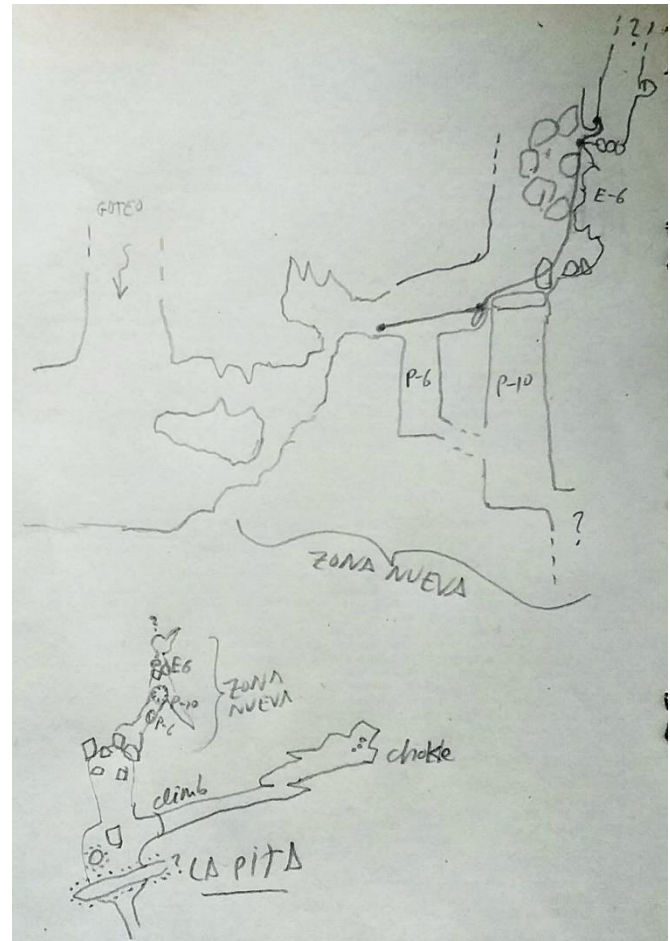 ?
GOTEO
E-6
P-6
P-10
?
ZONA NUEVA
?
E6
P-10
P-6
ZONA
NUEVA
choke
climb
?
LA PITA